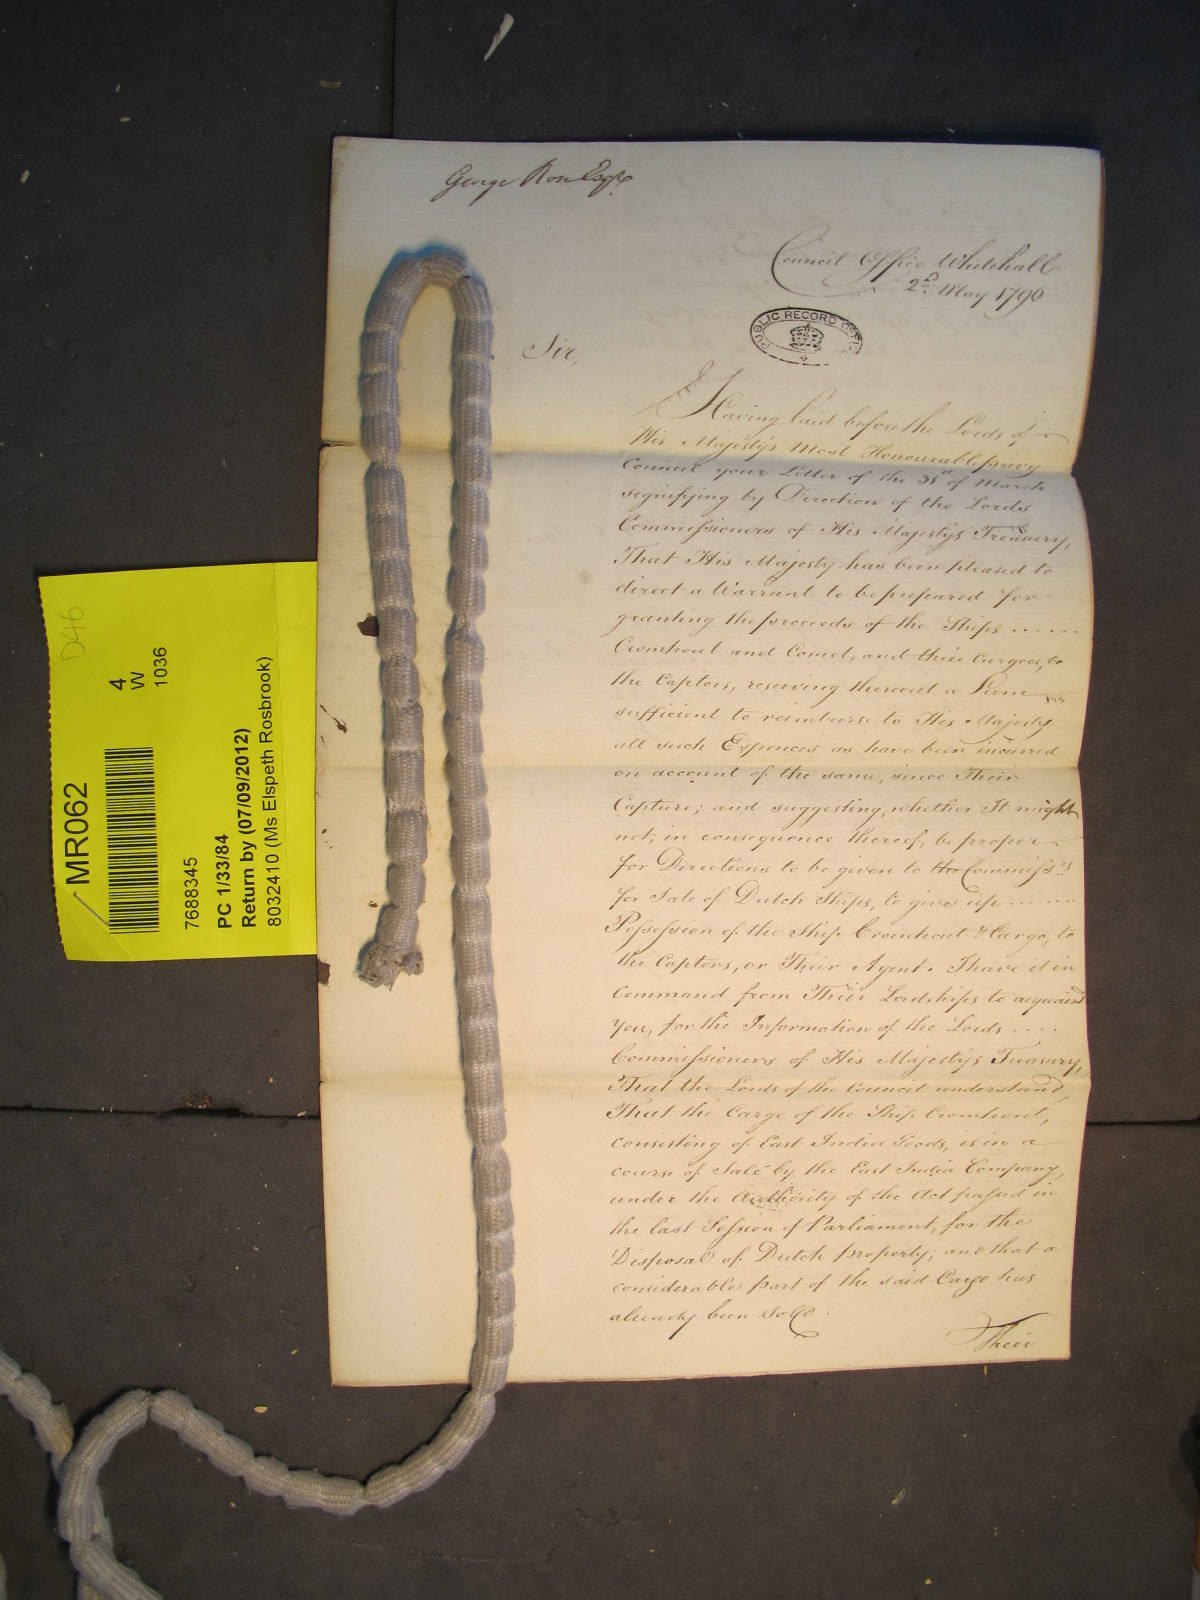 George Rose Esqr.
Council Office Whitehall
2d. May 1796
PUBLIC RECORD OFFI
Sir,
Having laid before the Lords of
His Majesty's Most Honourable privy
Council your Letter of the 31st of March
signifying by Direction of the Lords
Commissioners of His Majesty's Treasury,
That His Majesty has been pleased to
direct a Warrant to be prepared for
granting the proceeds of the Ships ......
Cromhout and Comet, and their Cargoes, to
the Captors, reserving thereout a Sum
sufficient to reimburse to His Majesty
all such Expences as have been incurred
on account of the same, since Their
Capture; and suggesting, whether It might
not, in consequence thereof, be proper
for Directions to be given to the Commissrs
for Sale of Dutch Ships, to give up ........
Possession of the Ship Cromhout & Cargo, to
the Captors, or Their Agent. I have it in
Command from Their Lordships to acquaint
You, for the Information of the Lords ....
Commissioners of His Majesty's Treasury,
That the Lords of the Council understand,
That the Cargo of the Ship Cromhout,
consisting of East India Goods, is in a
course of Sale by the East India Company,
under the Authority of the Act passed in
the last Session of Parliament, for the
Disposal of Dutch property; and that a
considerable part of the said Cargo has
already been Sold.
Their
D46
4
W
1036
MR062
7688345
PC 1/33/84
Return by (07/09/2012)
8032410 (Ms Elspeth Rosbrook)